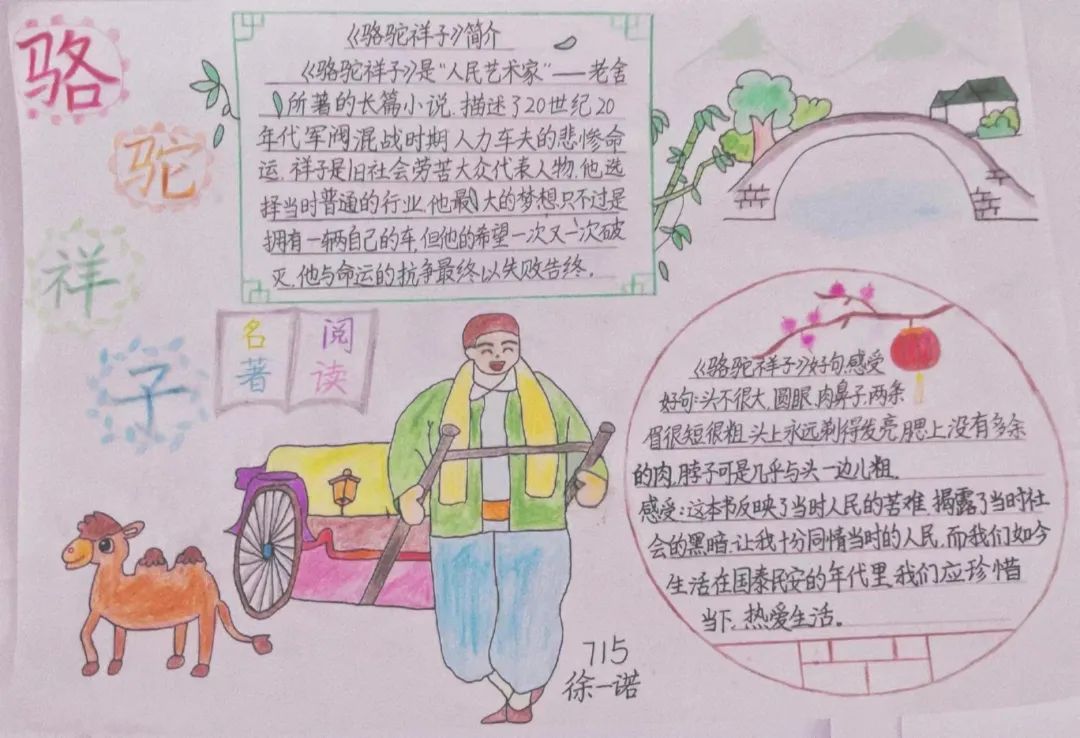 骆
驼
祥
子
《骆驼祥子》简介
《骆驼祥子》是“人民艺术家”——老舍
所著的长篇小说.描述了20世纪20
年代军阀混战时期人力车夫的悲惨命
运.祥子是旧社会劳苦大众代表人物.他选
择当时普通的行业.他最大的梦想只不过是
拥有一辆自己的车.但他的希望一次又一次破
灭.他与命运的抗争最终以失败告终。
名著
阅读
《骆驼祥子》好句,感受
好句:头不很大.圆眼.肉鼻子.两条
眉很短很粗.头上永远剃得发亮.腮上没有多余
的肉.脖子可是几乎与头一边儿粗.
感受:这本书反映了当时人民的苦难.揭露了当时社
会的黑暗.让我十分同情当时的人民.而我们如今
生活在国泰民安的年代里.我们应珍惜
当下.热爱生活。
715
徐一诺